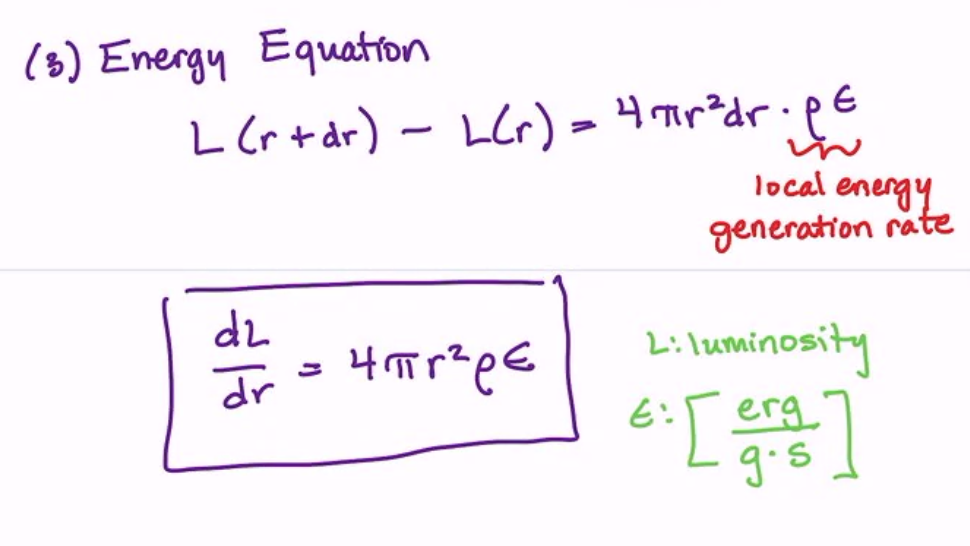 (3) Energy Equation
L(r+dr) − L(r) = 4πr²dr · ρϵ
local energy
generation rate
dL/dr = 4πr²ρϵ
L: luminosity
ϵ: [erg/g·s]